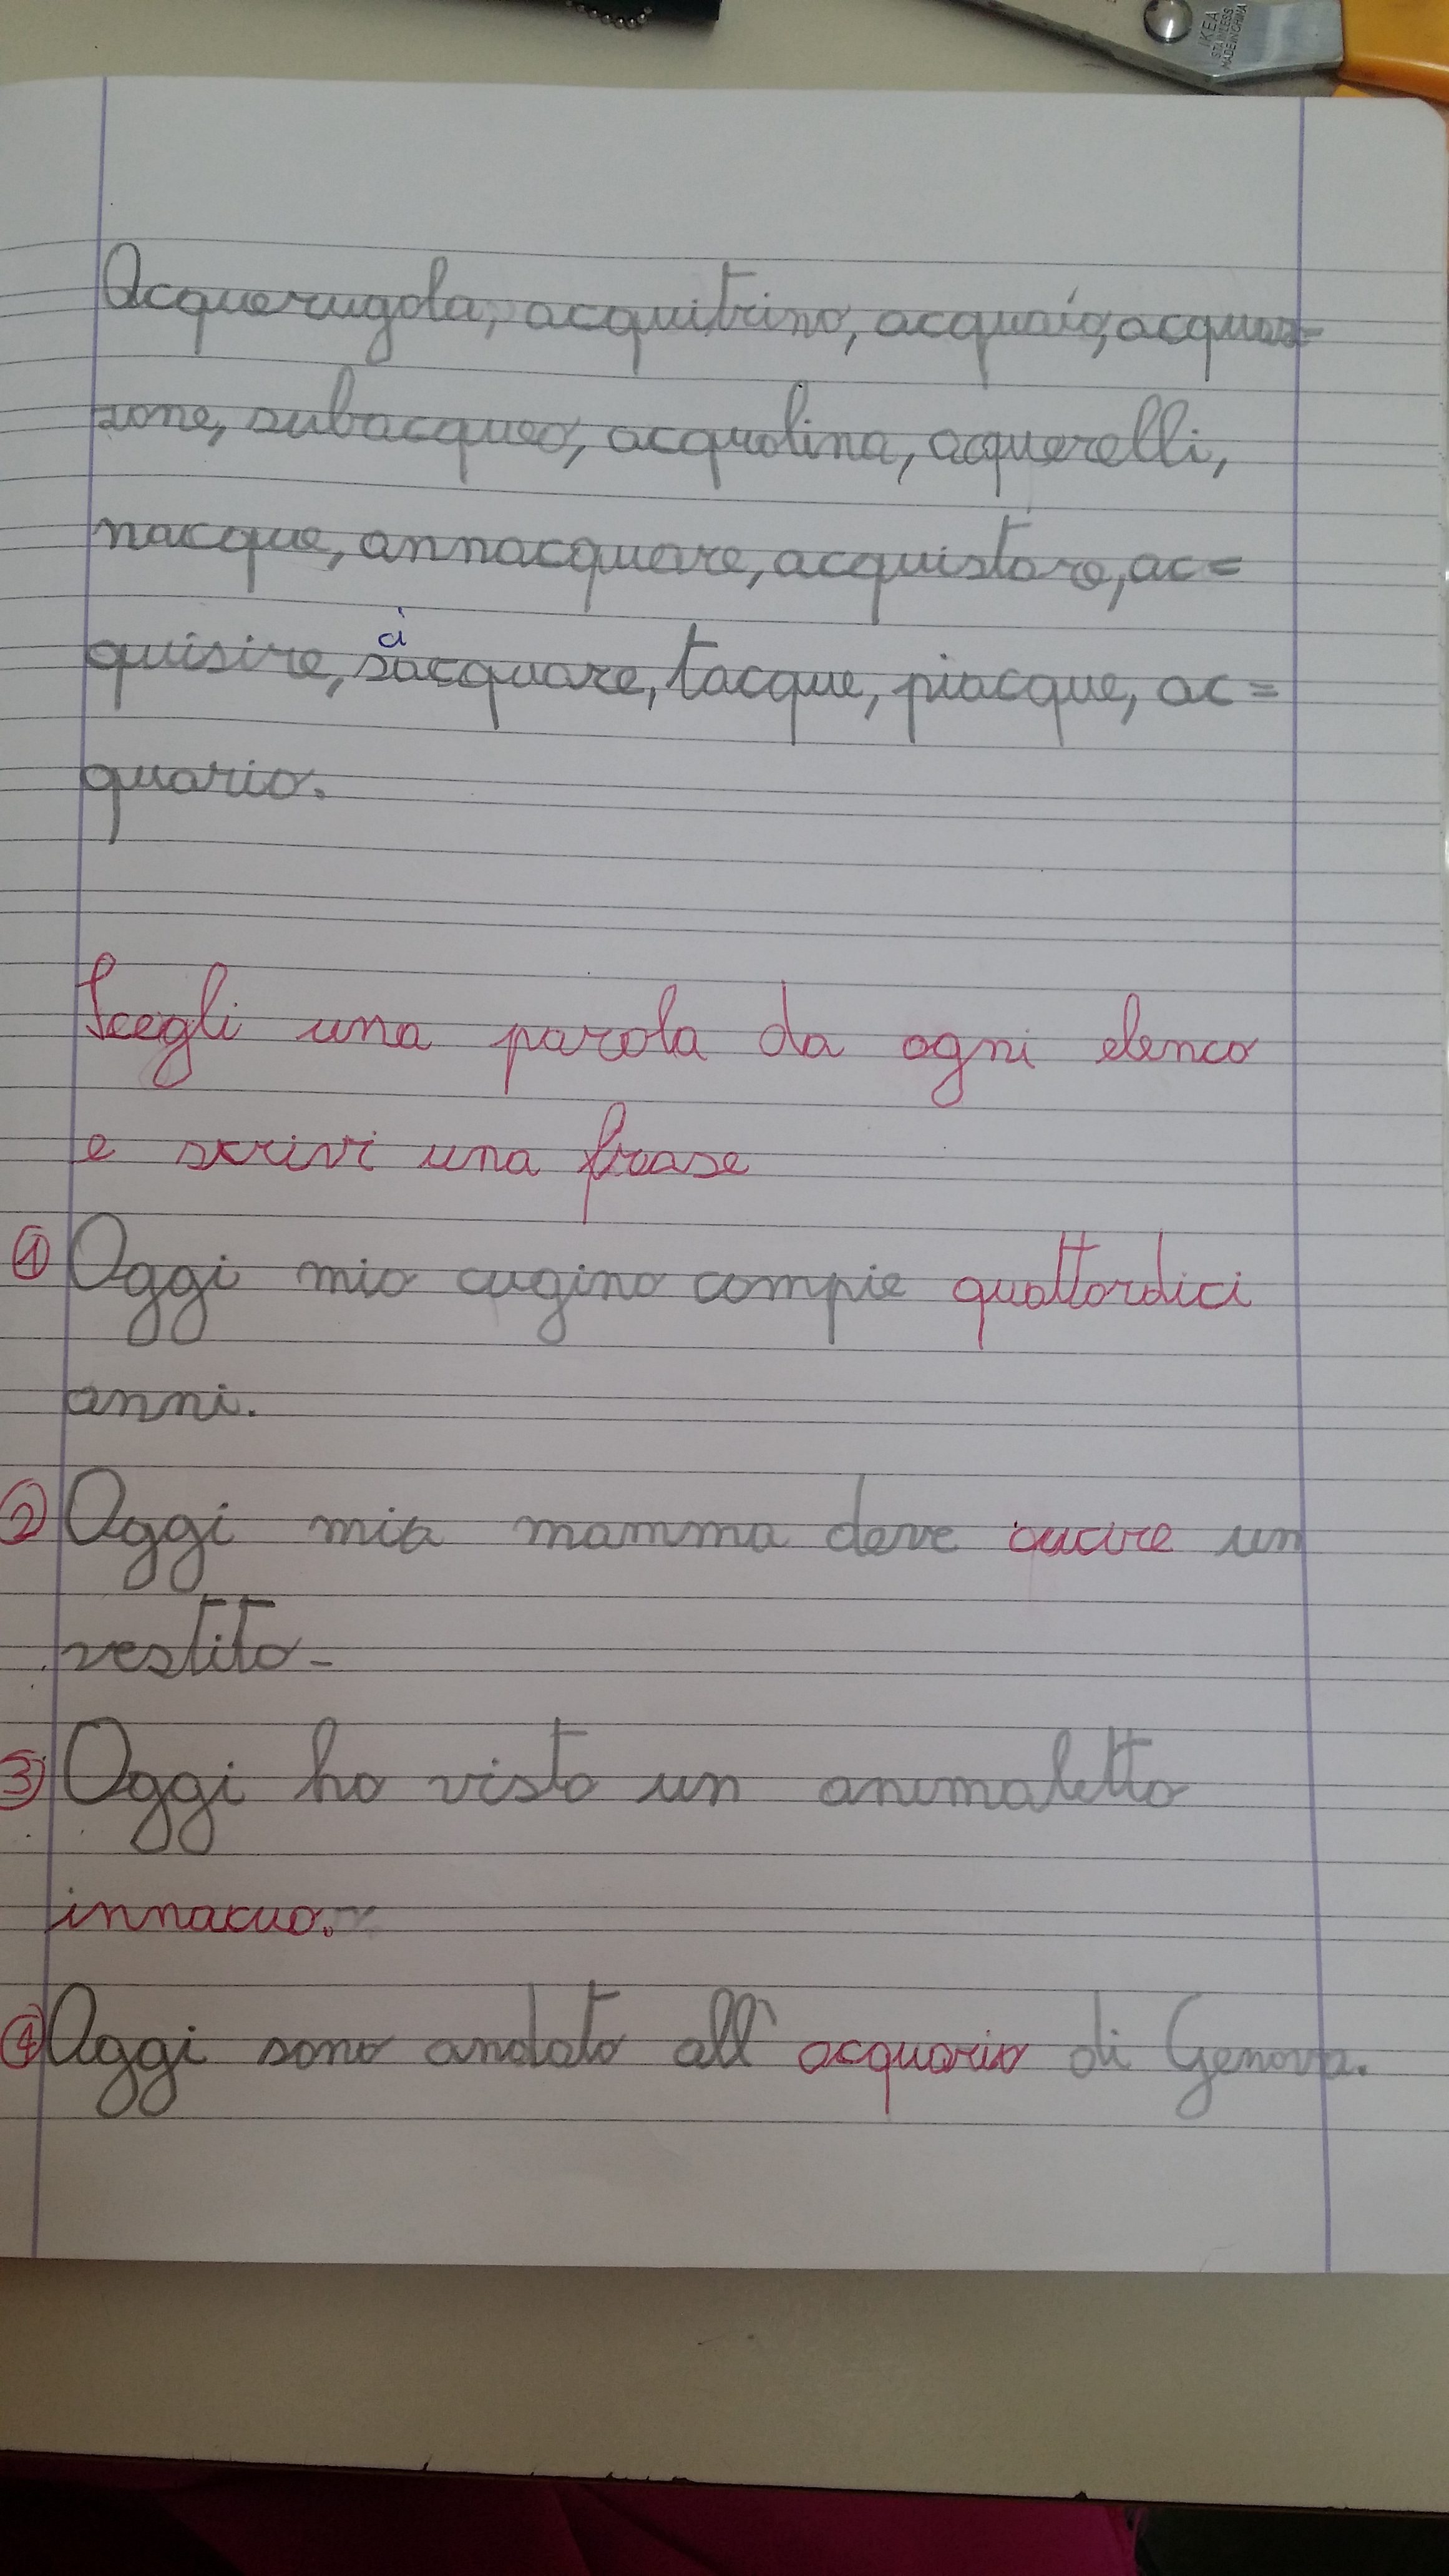 IKEA
STAINLESS
MADE IN CHINA
Acquerugola, acquitrino, acquaio, acquaz=
zone, subacqueo, acquolina, acquerelli,
nacque, annacquare, acquistare, ac=
quisire, sciacquare, tacque, piacque, ac=
quario.
Scegli una parola da ogni elenco
e scrivi una frase
1 Oggi mio cugino compie quattordici
anni.
2 Oggi mia mamma deve cucire un
vestito.
3 Oggi ho visto un animaletto
innacuo.
4 Oggi sono andato all'acquario di Genova.